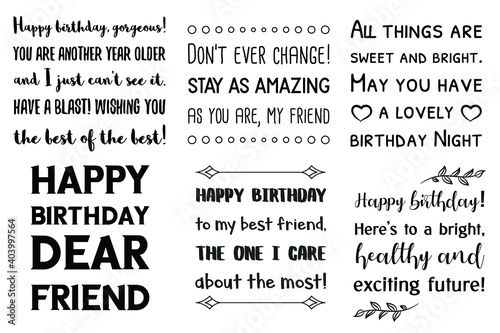 Happy birthday, gorgeous!
YOU ARE ANOTHER YEAR OLDER
and I just can't see it.
HAVE A BLAST! WISHING YOU
the best of the best!
DON'T EVER CHANGE!
STAY AS AMAZING
AS YOU ARE, MY FRIEND
ALL THINGS ARE
SWEET AND BRIGHT.
MAY YOU HAVE
A LOVELY
BIRTHDAY NIGHT
HAPPY
BIRTHDAY
DEAR
FRIEND
HAPPY BIRTHDAY
to my best friend,
THE ONE I CARE
about the most!
Happy birthday!
HERE'S TO A BRIGHT,
healthy and
exciting future!
Adobe Stock | #403997564